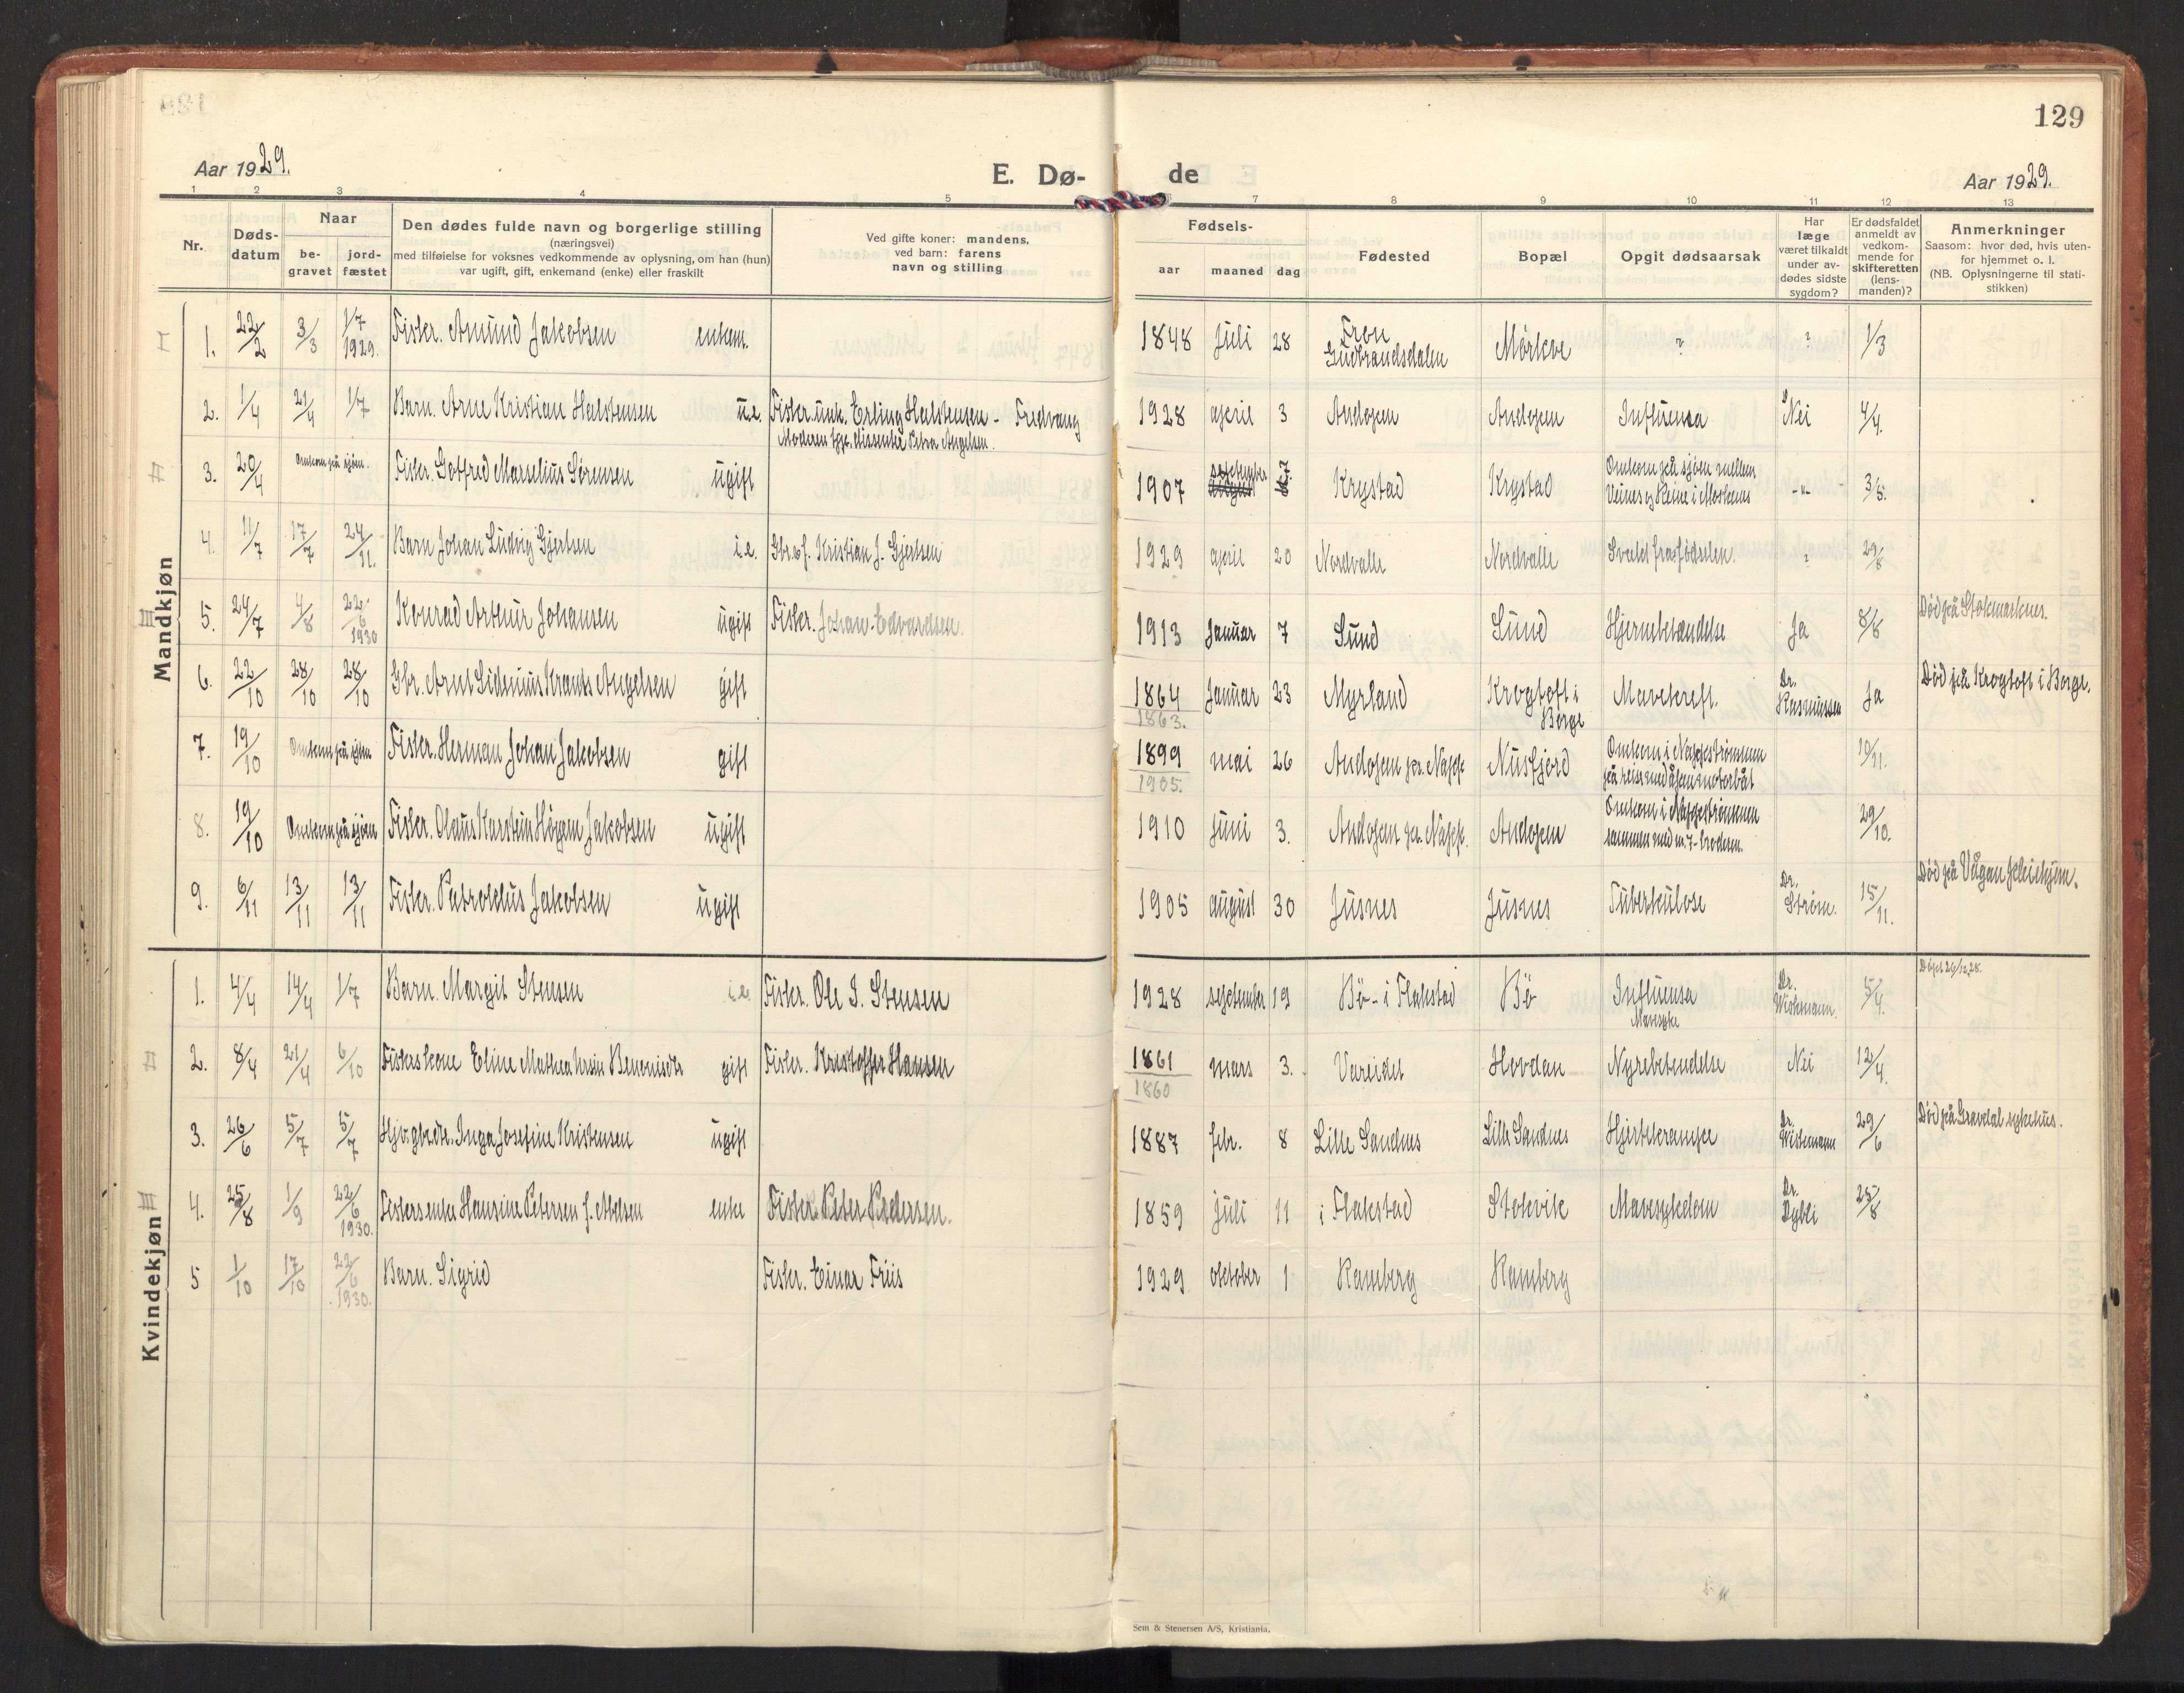 129
Aar 1929.
E. Dø-
de
Aar 1929.
1 2 3 4 5 6 7 8 9 10 11 12 13
Nr.
Døds-
datum
Naar
be-
gravet
jord-
fæstet
Den dødes fulde navn og borgerlige stilling
(næringsvei)
med tilføielse for voksnes vedkommende av oplysning, om han (hun)
var ugift, gift, enkemand (enke) eller fraskilt
Ved gifte koner: mandens,
ved barn: farens
navn og stilling
Fødsels-
aar
maaned
dag
Fødested
Bopæl
Opgit dødsaarsak
Har
læge
været tilkaldt
under av-
dødes sidste
sygdom?
Er dødsfaldet
anmeldt av
vedkom-
mende for
skifteretten
(lens-
manden)?
Anmerkninger
Saasom: hvor død, hvis uten-
for hjemmet o. l.
(NB. Oplysningerne til stati-
stikken)
Mandkjøn
1. 22/2 3/3 1/7 1929. Fisker. Amund Jakobsen enkem. 1848 Juli 28 Fron Gudbrandsdalen Mårkve ? ? 1/3
2. 1/4 21/4 1/7 Barn. Arne Kristian Halstensen u.e. Fisker. unk. Erling Halstensen - Fredvang 1928 april 3 Andopen Andopen Influensa Nei 4/4.
Moderen pike dissenter Petra Angelsen.
3. 20/4 Omkom på sjøen. Fisker. Gotfred Marselius Sørensen ugift 1907 september 7 Krystad Krystad Omkom på sjøen mellem
Veines og Reine i Moskenes - " - 3/5.
4. 11/7 17/7 24/11. Barn Johan Ludvig Gjertsen i.e. Gbr. & f. Kristian J. Gjertsen 1929 april 20 Nordvalle Nordvalle Svakt fra fødselen. ? 29/8
5. 24/7 4/8 22/6 1930 Konrad Arthur Johansen ugift Fisker. Johan Edvardsen. 1913 Januar 7 Sund Sund Hjernebetændelse Ja 8/8 Død på Stokmarknes.
6. 22/10 28/10 28/10 Gbr. Arnt Sidenius Krants Angelsen gift 1864 Januar 23 Myrland Krogtoft i Borge Mavekreft. Dr. Rasmussen Ja Død på Krogtoft i Borge.
1863.
7. 19/10 Omkom på sjøen Fisker. Herman Johan Jakobsen gift 1899 mai 26 Andopen pr. Napp Nusfjord Omkom i Nappstrømmen
på reise med åpen motorbåt 10/11.
1905.
8. 19/10 Omkom på sjøen Fisker. Olaus Karstein Høgem Jakobsen ugift 1910 Juni 3. Andopen pr. Napp. Andopen Omkom i Nappstrømmen
sammen med nr. 7 - broderen. 29/10.
9. 6/11 13/11 13/11 Fisker. Patroclus Jakobsen ugift 1905 august 30 Jusnes Jusnes Tuberkulose Dr. Strøm. 15/11. Død på Vågan pleiehjem.
Kvindekjøn
1. 4/4 14/4 1/7 Barn. Margit Stensen i.e. Fisker. Ole I. Stensen 1928 september 19 Bö - i Flakstad Bö Influensa Dr. Widemann. 5/4. Døpt 26/12,28.
Mavesyke
2. 8/4 21/4 6/10 Fiskers kone Eline Mathea Ursin Benonisdtr. gift Fisker. Kristoffer Hansen 1861 mars 3. Vareidet Hovdan Nyrebetendelse Nei 12/4.
1860
3. 26/6 5/7 5/7 Inga Josefine Kristensen ugift 1887 febr. 8 Lille Sandnes Lille Sandnes Hjertekrampe Dr. Widemann 29/6 Død på Gravdal sykehus.
4. 25/8 1/9 22/6 1930. Fiskers enke Hansine Petersen f. Abelsen enke Fisker. Peter Pedersen. 1859 Juli 11 i Flakstad Stokvik Mavesykdom Dr. Dybli 25/8
5 1/10 17/10 22/6 1930. Barn. Sigrid Fisker. Einar Friis 1929 oktober 1 Ramberg Ramberg
Sem & Stenersen A/S, Kristiania.